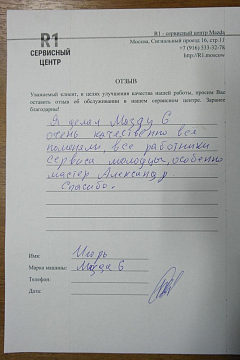 R1
СЕРВИСНЫЙ
ЦЕНТР
R1 - сервисный центр Mazda
Москва, Сигнальный проезд 16, стр.11
+7 (916) 533-32-78
http://R1.moscow
ОТЗЫВ
Уважаемый клиент, в целях улучшения качества нашей работы, просим Вас
оставить отзыв об обслуживании в нашем сервисном центре. Заранее
благодарны!
Я делал Мазду 6
очень качественно все
все работники
сервиса молодцы, особенно
мастер Александр.
Спасибо.
Имя: Игорь
Марка машины: Мазда 6
Телефон:
Дата: